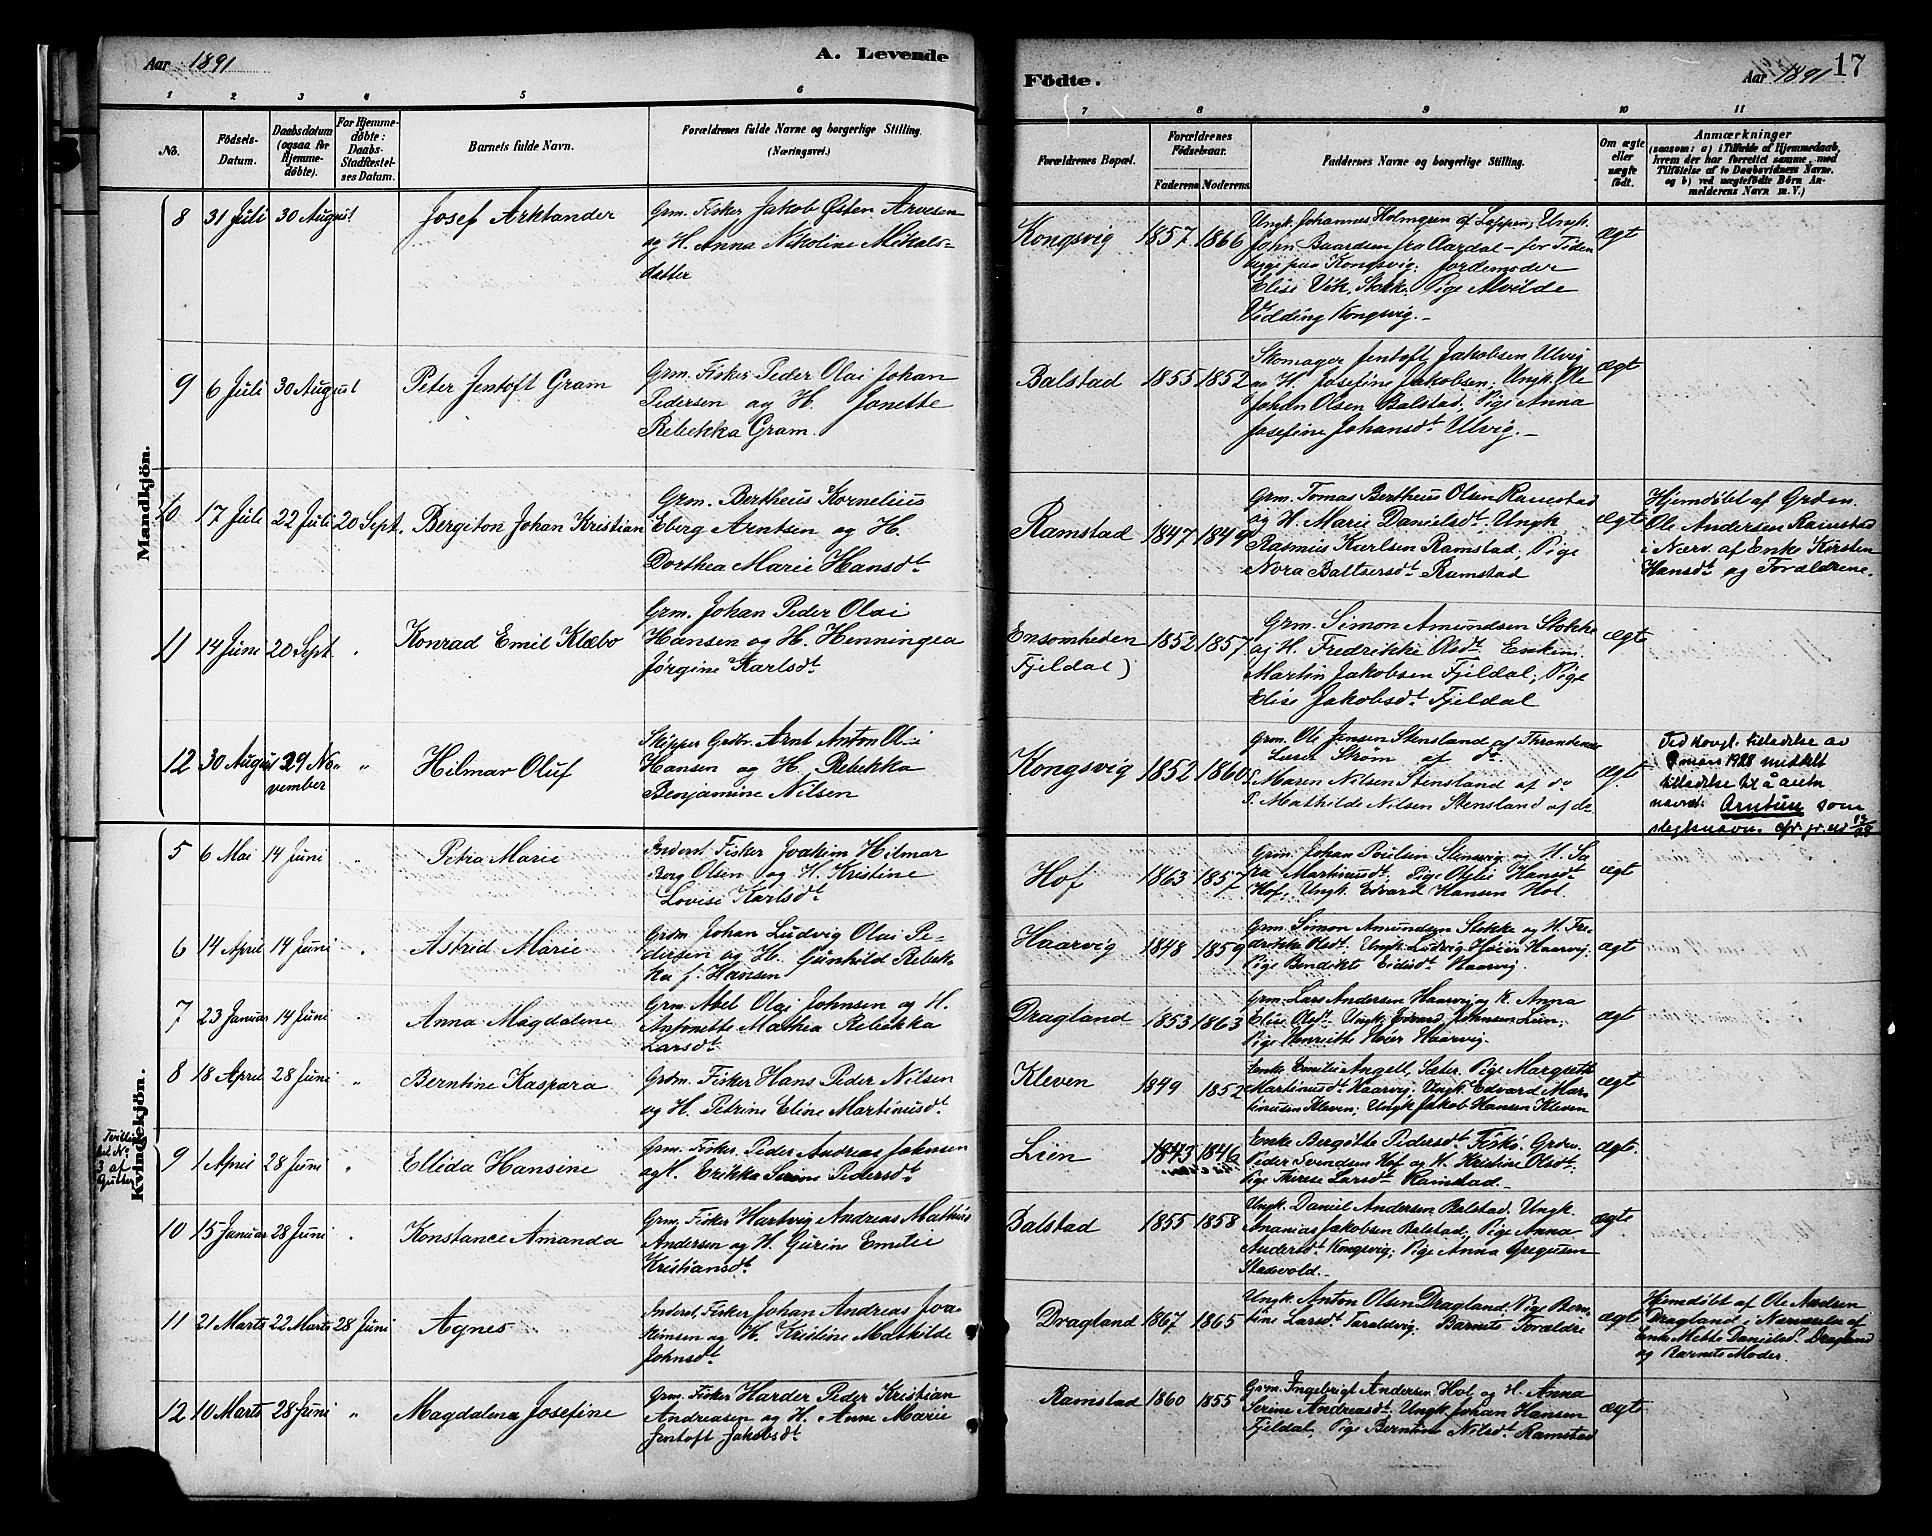 Aar 1891
A. Levende
Födte.
Aar 1891
17
1 2 3 4 5 6
7 8 9 10 11
No.
Födsels-
Datum.
Daabsdatum
(ogsaa for
Hjemme-
döbte).
For Hjemme-
döbte:
Daabs-
Stadfæstel-
ses Datum.
Barnets fulde Navn.
Forældrenes fulde Navne og borgerlige Stilling.
(Næringsvei.)
Forældrenes Bopæl.
Forældrenes
Födselsaar.
Faderens. Moderens.
Faddernes Navne og borgerlige Stilling.
Om ægte
eller
uægte
födt.
Anmærkninger
(saasom: a) i Tilfælde af Hjemmedaab,
hvem der har forrettet samme, med
Tilföielse af to Daabsvidners Navne.
og b) ved uægtefödte Börn An-
melderens Navn m. V.)
Mandkjön.
8 31 Juli 30 August Josef Arktander
Grm. Fisker Jakob Østen Arvesen
og H. Anna Nikoline Mikals-
datter
Kongsvig 1857 1866
Ungk. Johannes Holmgren af Leppen, Ungk.
John Baardsen fra Aardal - for Tiden
begge paa Kongsvig; Jordemoder
Elise Vik, Stokk; Pige Alvilde
Vedding Kongsvig.-
Ægt
9 6 Juli 30 August Peter Jentoft Gram
Grm. Fisker Peder Olai Johan
Pedersen og H. Jonette
Rebekka Gram.
Balstad 1855 1852
Skomager Jentoft Jakobsen Ulvig
og H. Josefine Jakobsen; Ungk. Ole
Johan Olsen Balstad; Pige Anna
Josefine Johansdt Ulvig.-
Ægt
10 17 Juli 22 Juli 20 Sept. Bergiton Johan Kristian
Grm. Bertheus Kornelius
Eberg Arntsen og H.
Dorthea Marie Hansdt
Ramstad 1847 1849
Grm. Tomas Bertheus Olsen Ramstad
og H. Marie Danielsdt. Ungk
Rasmus Karlsen Ramstad, Pige
Nora Baltsersdt Ramstad
Ægt
Hjemdøbt af Grdm.
Ole Andersen Ramstad
i Nærv. af Enke Kirsten
Hansdt og Forældrene.
11 14 Juni 20 Sept " Konrad Emil Klæbo
Grm. Johan Peder Olai
Hansen og H. Henningea
Jørgine Karlsdt
Ensomheden
Fjeldal) 1852 1857
Grm. Simon Amundsen Stokke
og H. Fredrikke Olsdt. Enkem.
Martin Jakobsen Fjeldal; Pige
Elise Jakobsdt Fjeldal
Ægt
12 30 August 29 No-
vember " Hilmar Oluf
Skipper Grdbr. Arnt Anton Olai
Hansen og H. Rebekka
Benjamine Nilsen
Kongsvig 1852 1860
Grm. Ole Jensen Stensland af Throndenæs
Laser Strøm af do.
P. Maren Nilsen Stensland af do
P. Mathilde Nilsen Stensland af do
Ægt.
Ved Kongl. tilladelse av
9 mars 1928 meddelt
tilladelse til å anta
navnet Arntun som
slegtsnavn.
Kvindekjön.
5 6 Mai 14 Juni " Petra Marie
Inderst Fisker Joakim Hilmar
Berg Olsen og H. Kristine
Lovise Karlsdt
Hof 1863 1857
Grm. Johan Poulsen Stensvig og H. Sa-
ra Martinusdt, Pige Otelie Hansdt
Hof, Ungk. Edvard Hansen Hol
Ægt
6 14 April 14 Juni " Astrid Marie
Grdm. Johan Ludvig Olai Pe-
dersen og H. Gunhild Rebek-
ka f. Hansen
Haarvig 1848 1859
Grm. Simon Amundsen Stokke og H. Fre-
drikke Olsdt. Ungk. Ludvig Høier Haarvig;
Pige Bendikte Eidisdt Haarvig.
Ægt
7 23 Januar 14 Juni " Anna Magdalene
Grm. Abel Olai Johnsen og H.
Antonette Mathea Rebekka
Larsdt.
Dragland 1853 1863
Grm. Lars Andersen Haarvig og H. Anna
Elise Olsdt. Ungk. Edvard Johnsen Lien;
Pige Henriette Høier Haarvig.
Ægt
8 18 April 28 Juni " Berntine Kaspara
Grdm. Fisker Hans Peder Nilsen
og H. Petrine Eline Martinusdt
Kleven 1849 1852
Enke Emilie Angell, Sæter. Pige Margrethe
Martinusdt Haarvig; Ungk. Edvard Mar-
tinusen Kleven; Ungk Jakob Hansen Kleven
Ægt
Tvilling
til No
3 af
Gutter
9 1 April 28 Juni " Ellida Hansine
Grm. Fisker. Peder Andreas Johnsen
og H. Erikka Serine Pedersdt
Lien 1843 1846
Enke Bergitte Pedersdt Fiskø. Grdm.
Peder Svendsen Hof og H. Kristine Olsdt.
Pige Therese Larsdt Ramstad.-
Ægt
10 15 Januar 28 Juni " Konstance Amanda
Grm. Fisker Hartvig Andreas Mathias
Andersen og H. Gurine Emilie
Kristiansdt
Balstad 1855 1858
Ungk. Daniel Andersen Balstad, Ungk
Ananias Jakobsen Balstad, Pige Anna
Andersdt Kongsvig; Pige Anna Gregusen
Stadsvold.-
Ægte
11 21 Marts 22 Marts 28 Juni Agnes
Inderst, Fisker Johan Andreas Joa-
kimsen og H. Kristine Mathilde
Johnsdt
Dragland 1867 1865
Ungk. Anton Olsen Dragland, Pige Bern-
tine Larsdt Taraldvig. Barnets Forældre
Ægt
Hjemdøbt af Ole Andersen
Dragland i Nærværelse af
Enke Mette Danielsdt Dragland
og Barnets Moder.
12 10 Marts 28 Juni " Magdalena Josefine
Grm. Fisker Harder Peder Kristian
Andreasen og H. Anne Marie
Jentoft Jakobsdt
Ramstad 1860 1855
Grm. Ingebrigt Andersen Hol og H. Anna
Serine Andreasdt. Ungk Johan Hansen
Fjeldal, Pige Berntine Nilsdt Ramstad
Ægt